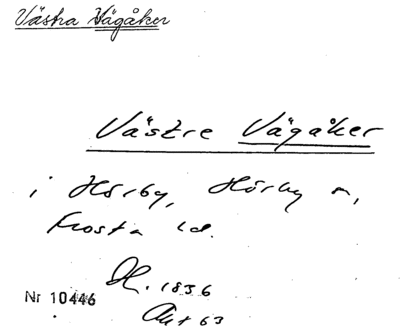 Västra Vägåker
Västre Vägåker
i Hörby, Hörby s,
Frosta hd.
H. 1836
Nr 10446
Akt 63